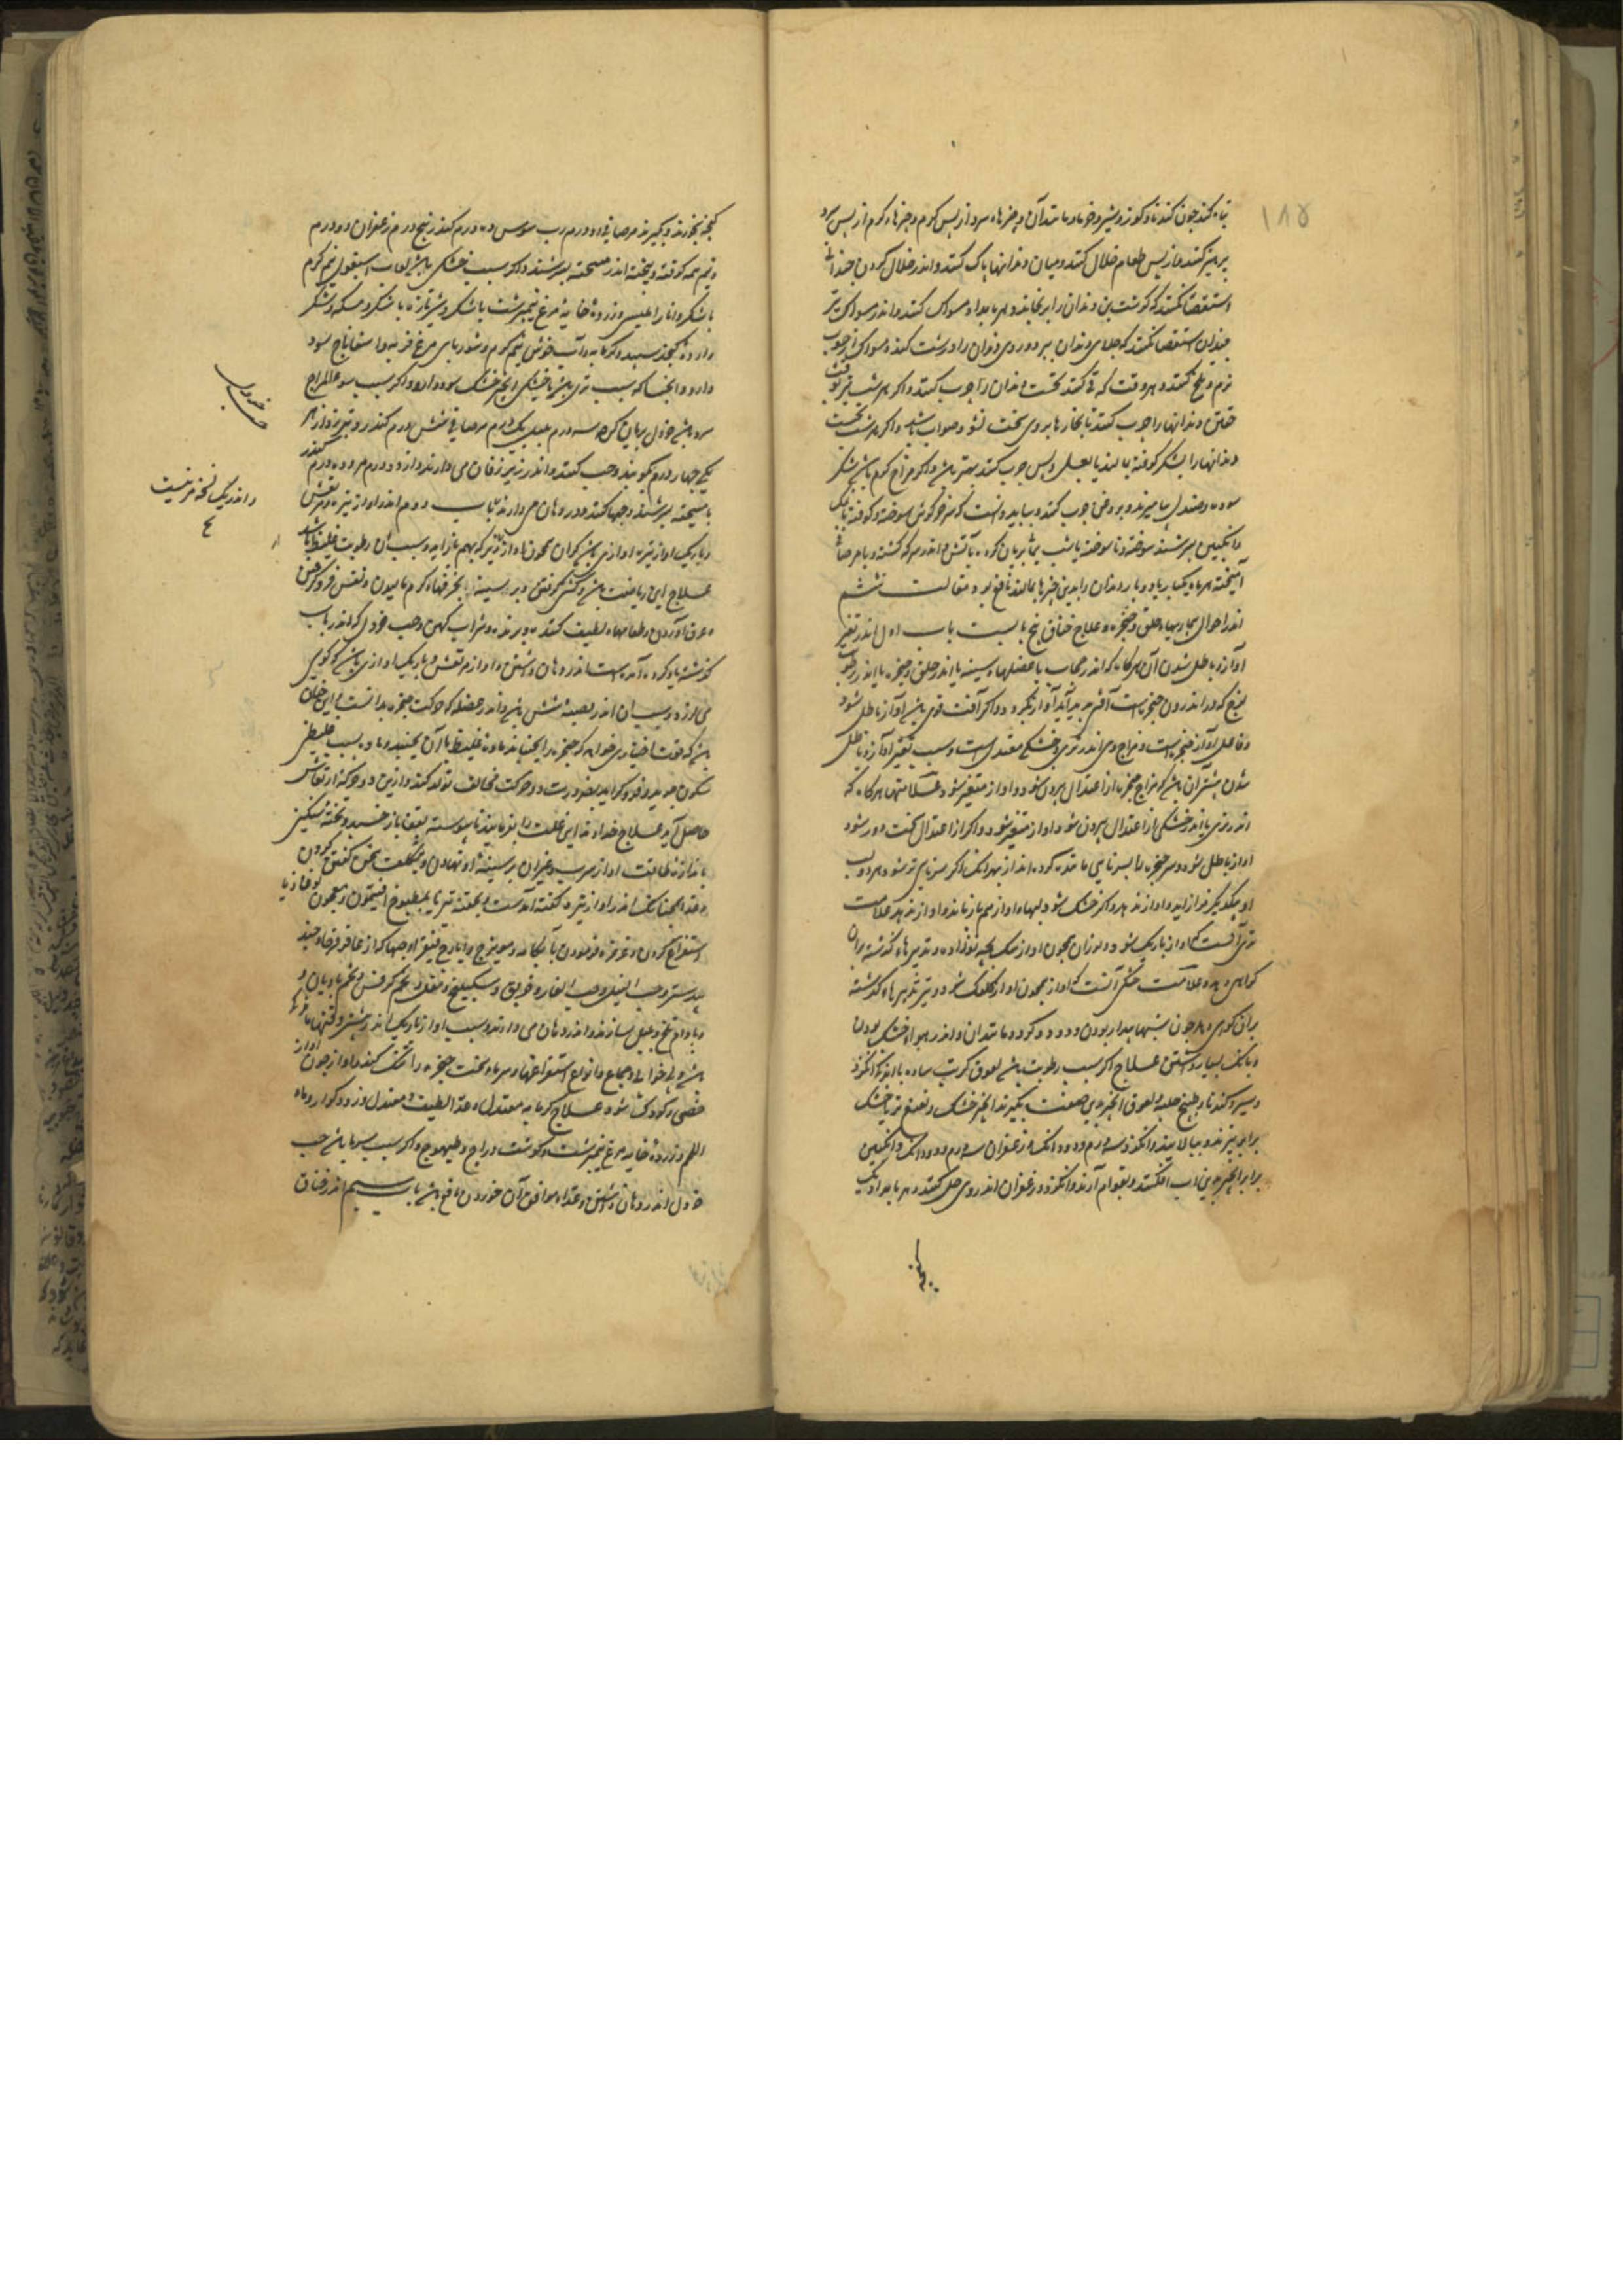 ۱۸۵
تباه کند چون کندنا و کوز و شیر و خرما و مانند آن و چیزهاء سرد از پس گرم و چیزهاء گرم از پس سرد
پرهیز کنند و از پس طعام خلال کنند و میان دندانها پاک کنند و اندر خلال کردن چندانی
استقصا نکنند که گوشت بن دندان را برنجاند و هر بامداد مسواک کنند و اندر مسواک نیز
چندان استقصا نکنند که جلای دندان ببرد و روی دندان را درشت کند و مسواک از چوب
نرم و تلخ کنند و هر وقت که قی کنند نخست دندان را چرب کنند و اگر هر شب نیز بوقت
خفتن دندانها را چرب کنند تا بخارها بر وی سخت نشود صواب باشد و اگر هر شب نخست
دندانها را بشکر کوفته بمالند یا بعسل و پس چرب کنند بهتر باشد و اگر مزاج گرم باشد بشکر
سوده و صندل بیامیزند و بروغن چرب کنند و بباید دانست که سر خرگوش سوخته و کوفته با نمک
و انگبین بسرشند سوخته و ناسوخته یا شب یمانی بریان کرده بآتش اندر سرکه کشته و با مر صافی
آمیخته هر ماه یکبار یا دو بار دندان را بدین چیزها بمالند نافع بود مقالت ششم
اندر احوال بیماریهاء حلق و حنجره و علاج خناق پنج بابست باب اول اندر تغیر
آواز و باطل شدن آن هرگاه که اندر حجاب یا عضلهاء سینه یا اندر حلق و حنجره یا اندر رطوبت
لزج که در اندرون حنجره است آفتی پدید آید آواز بگردد و اگر آفت قوی باشد آواز باطل شود
و فاعل آواز حنجره است و مزاج وی اندر تری و خشکی معتدل است و سبب تغیر آواز و باطل
شدن بیشتر آن باشد که مزاج حنجره از اعتدال بیرون شود و آواز متغیر شود و علامتها هرگاه که
اندر تری یا اندر خشکی از اعتدال بیرون شود آواز متغیر شود و اگر از اعتدال سخت دور شود
آواز باطل شود و سر حنجره را بسر نایی مانند کرده‌اند از بهر آنک اگر سر نای تر شود هر دو لب
او بیکدیگر فراز آید و آواز ندهد و اگر خشک شود لبهاء او از هم باز ماند و آواز ندهد علامت
تری آنست که آواز باریک شود و لرزان همچون آواز سک بچه نوزاده و تدبیرهاء گذشته بران
گواهی دهد و علامت خشکی آنست که آواز همچون آواز کلنگ شود و نیز تدبیرهاء گذشته
بران گواهی دهد چون شبها بیدار بودن و دود و گرد و مانند آن و اندر هوا خشک بودن
و بانگ بسیار داشتن علاج اگر سبب رطوبت باشد لعوق کرنب ساده با اندک انگژد
و سیر و کندنا و طبیخ حلبه و لعوق انجیر بدین صفت بگیرند انجیر خشک و نعنع تر یا خشک
برابر بپزند و بپالایند و انگژد سه درم و دو دانگ و زعفران سه درم و دو دانگ و انگبین
برابر انجیر بدین آب افکنند و بقوام آرند و انگژد و زعفران اندر وی حل کنند و هر بامداد یک
کفچه
کفچه بخورند و بگیرند مر صافی دو درم رب سوس ده درم کندر پنج درم زعفران دو درم
و نیم همه کوفته و بیخته اندر میبختج بسرشند و اگر سبب خشکی باشد لعاب اسبغول نیم گرم
با شکر و انار املیسی و زرده خایه مرغ نیم برشت با شکر و شیر تازه با شکر و مسکه و شکر
و آرده کنجد سپید و گرمابه و آب خوش نیم گرم و شورباء مرغ فربه و اسفاناج سود
دارد و آنجا که سبب تری باشد یا خشکی انجیر خشک سود دارد و اگر سبب سوء المزاج
سرد باشد خردل بریان کرده سه درم پلپل یک درم مر صافی شش درم کندر و نیز رد از هر
یکی چهار درم بکوبند و حب کنند و اندر زیر زبان می‌دارند و از دو درم مر و ده درم کندر
با میبختج بسرشند و حبها کنند و در دهان می‌دارند باب دوم اندر آواز تیره و مرتعش
و باریک آواز تیره آوازی باشد گران همچون آواز ارزیز که بهم باز آید و سبب آن رطوبت غلیظ باشد
علاج این ریاضت باشد و کشتی گرفتن و بر سینه را بخرقهاء گرم مالیدن و نفس فرو گرفتن
و عرق آوردن و طعامهاء لطیف کنند و شراب کهن و حب خردل که اندر باب
گذشته یاد کرده آمده است اندر دهان داشتن و آواز مرتعش و باریک آوازی باشد که گویی
می‌لرزد و سبب آن اندر قصبه شش باشد و اندر عضله که حرکت حنجره بدانست این چنان
باشد که قوت اختیاری خواهد که حنجره را بجنباند ماده غلیظ با آن بجنبد و ماده بسبب غلیظی
سکون جوید و فرو گراید بضرورت دو حرکت مخالف تولد کند و ازین دو حرکت ارتعاش
حاصل آید علاج خداوند این علت را بفرمایند تا پیوسته بقفا باز خسبد و تخته سنگین
باندازه طاقت او از سرب و غیر آن بر سینه او نهادن و بتکلف سخن گفتن کردن
و غذا همچنانک اندر آواز تیره گفته آمدست و بحقنه تیز یا بمطبوخ افتیمون و بمعجون لوغاذیا
استفراغ کردن و غرغره فرمودن بآبکامه و مویزج و ایارج فیقرا و حبها که از عاقرقرحا و جند
بیدستر و حب النیل و حب الغار و خربق و سکبینج و مقل و تخم کرفس و تخم بادیان و
و بادام تلخ و پلپل سازند و اندر دهان می‌دارند و سبب آواز باریک اندر بیشتر وقتها ماندگی
باشد و بی خوابی و جماع و انواع استفراغها و سرماء سخت حنجره را تنگ کند و آواز چون آواز
خصی و کودک شود علاج گرمابه معتدل و غذا لطیف و معتدل و زود گوار و ماء
اللحم و زرده خایه مرغ نیم برشت و گوشت دراج و طیهوج و اگر سبب سرما باشد حب
خردل اندر دهان داشتن و غذاء موافق آن خوردن نافع باشد باب سیم اندر خناق
و اندر یک نسخه مر نیست